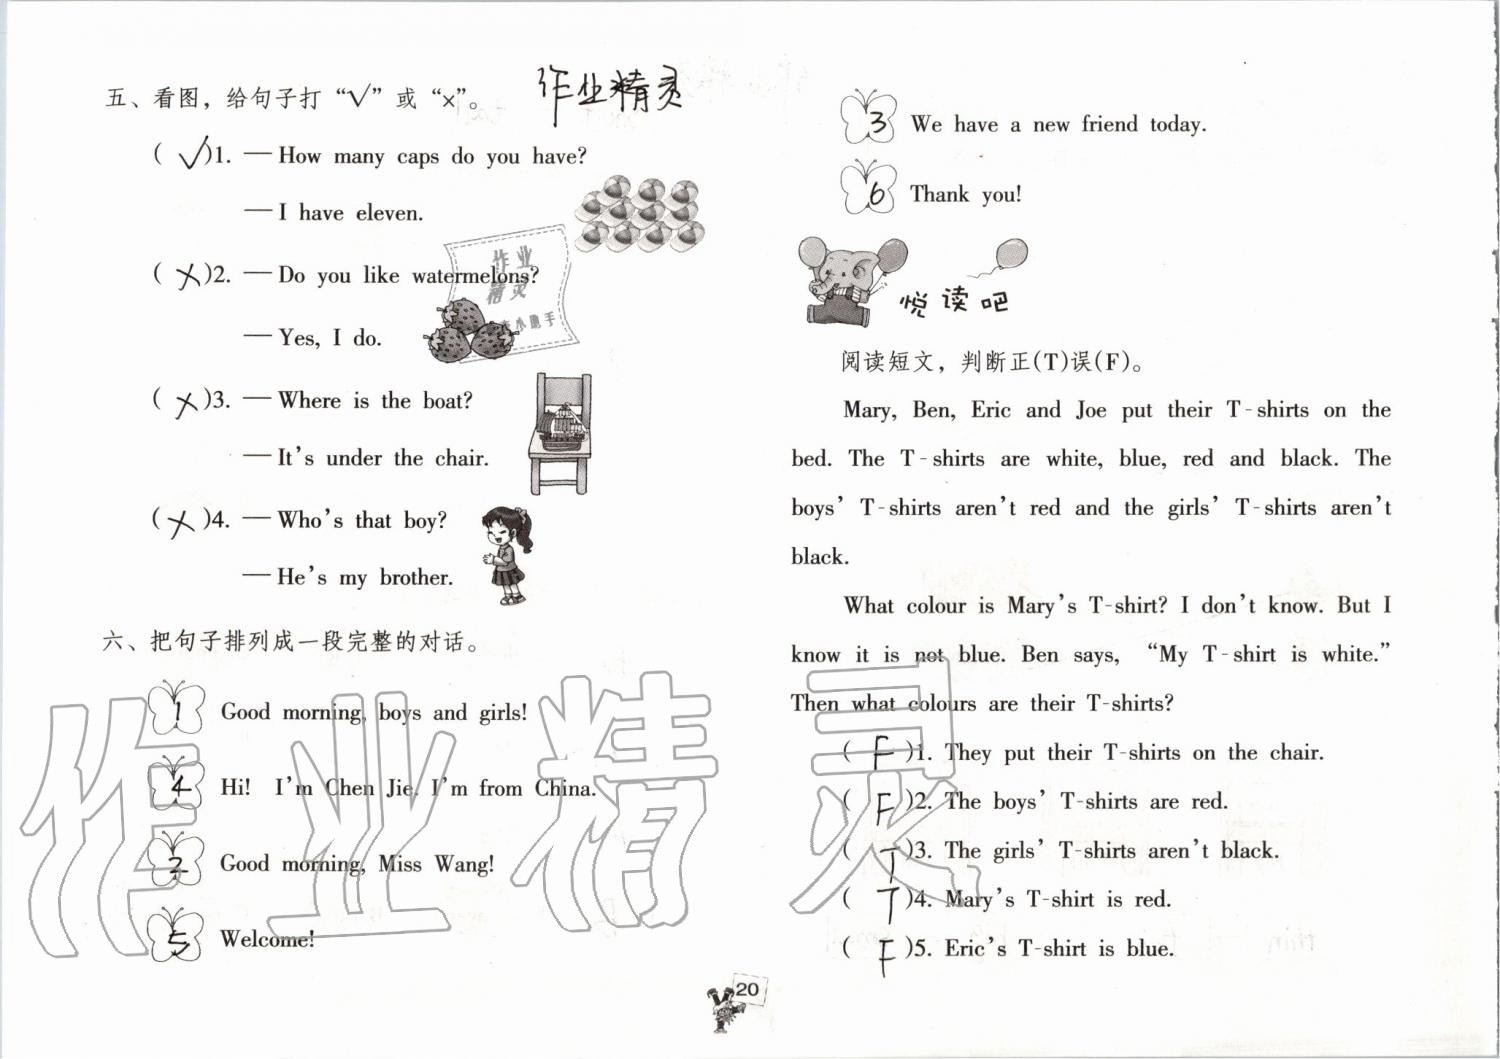 五、看图，给句子打“√”或“×”。
作业精灵
( √)1. — How many caps do you have?
— I have eleven.
( ×)2. — Do you like watermelons?
— Yes, I do.
作业
精灵
小助手
( ×)3. — Where is the boat?
— It's under the chair.
( ×)4. — Who's that boy?
— He's my brother.
六、把句子排列成一段完整的对话。
1 Good morning, boys and girls!
4 Hi! I'm Chen Jie. I'm from China.
2 Good morning, Miss Wang!
5 Welcome!
作业精灵
3 We have a new friend today.
6 Thank you!
悦读吧
阅读短文，判断正(T)误(F)。
Mary, Ben, Eric and Joe put their T-shirts on the
bed. The T-shirts are white, blue, red and black. The
boys' T-shirts aren't red and the girls' T-shirts aren't
black.
What colour is Mary's T-shirt? I don't know. But I
know it is not blue. Ben says, “My T-shirt is white.”
Then what colours are their T-shirts?
( F )1. They put their T-shirts on the chair.
( F )2. The boys' T-shirts are red.
( T )3. The girls' T-shirts aren't black.
( T )4. Mary's T-shirt is red.
( F )5. Eric's T-shirt is blue.
20